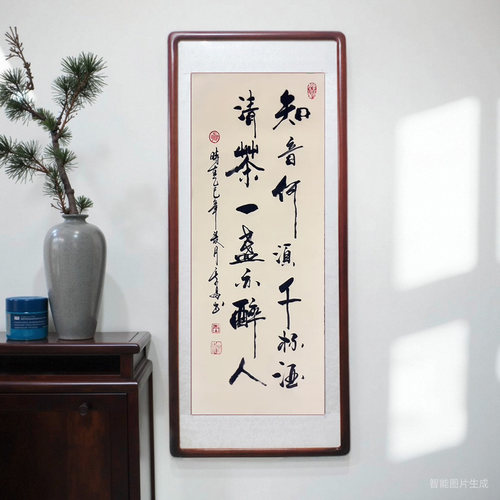 知音何须千杯酒
清茶一盏亦醉人
时在乙巳年葵月李鸟书
智能图片生成